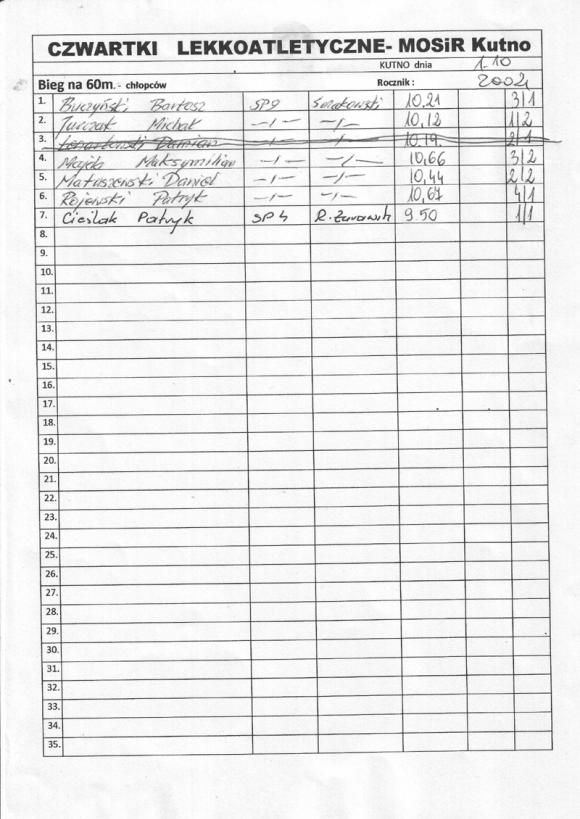 CZWARTKI LEKKOATLETYCZNE- MOSiR Kutno
KUTNO dnia 1.10
Bieg na 60m. - chłopców Rocznik : 2002
1. Buczyński Bartosz SP9 Smakowski 10,21 3/1
2. Jurczak Michał -/- -/- 10,12 1/2
3. Damian -/- -/- 10.19. 2/1
4. Majda Maksymilian -/- -/- 10,66 3/2
5. Matuszewski Daniel -/- -/- 10,44 2/2
6. Rojewski Patryk -/- -/- 10,67 4/1
7. Cieślak Patryk SP4 R. 9.50 1/1
8.
9.
10.
11.
12.
13.
14.
15.
16.
17.
18.
19.
20.
21.
22.
23.
24.
25.
26.
27.
28.
29.
30.
31.
32.
33.
34.
35.